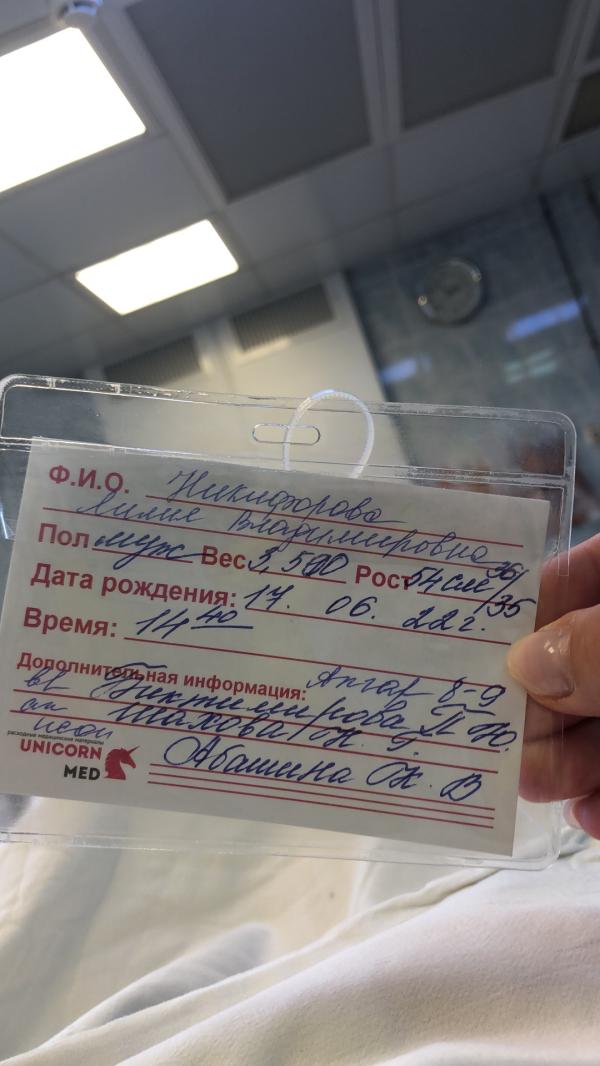 Ф.И.О. Никифорова
Лилия Владимировна
Пол муж Вес 3,590 Рост 54 см 36/35
Дата рождения: 17. 06. 22 г.
Время: 14 40
Дополнительная информация: Апгар 8-9
вр Биктимирова Л Ю.
ак Шахова Ж. Г.
неон Абашина Ж. В
расходные медицинские материалы
UNICORN
MED